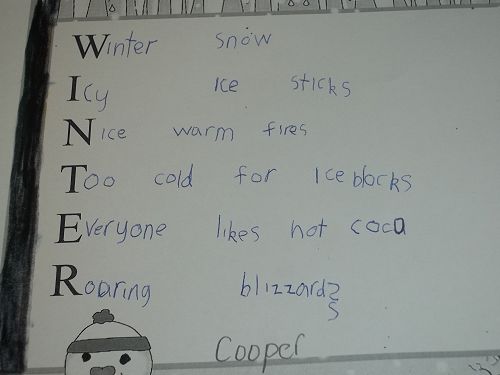 Winter snow
Icy Ice sticks
Nice warm fires
Too cold for Ice blocks
Everyone likes hot coca
Roaring blizzards
Cooper